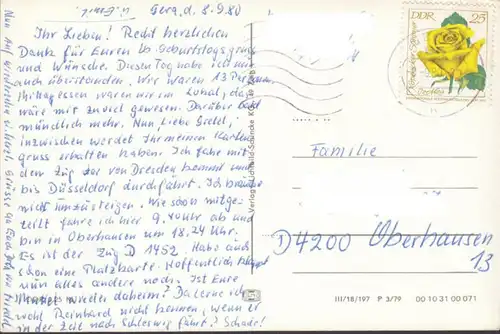 Gera, d. 8.9.80
Ihr Lieben! Recht herzlichen
Dank für Euren lb Geburtstagsgruss
und Wünsche. Diesen Tag habe ich nun
auch überstanden. Wir waren 13 Pers.
Mittagessen waren wir im Lokal, da
wäre mir zuviel gewesen. Darüber bald
mündlich mehr. Nun, liebe Gretel,
inzwischen werdet Ihr meinen Karten
gruss erhalten haben. Ich fahre mit
dem Zug der von Dresden kommt und
bis Düsseldorf durchfährt. Ich brauche
nicht umzusteigen. Wie schon mitge
teilt fahre ich hier 9.40 Uhr ab und
bin in Oberhausen um 18.24 Uhr.
Es ist der Zug D 1452. Habe auch
schon eine Platzkarte. Hoffentlich klappt
nun alles andere noch. Ist Eure
Mutter wieder daheim? Da lerne ich
wohl Reinhard nicht kennen, wenn er
in der Zeit nach Schleswig fährt? Schade!
Nun Auf Wiedersehen u. herzl. Grüsse an Euch
DDR 25
Familie
D4200 Oberhausen
13
III/18/197 P 3/79 00 10 31 00 071